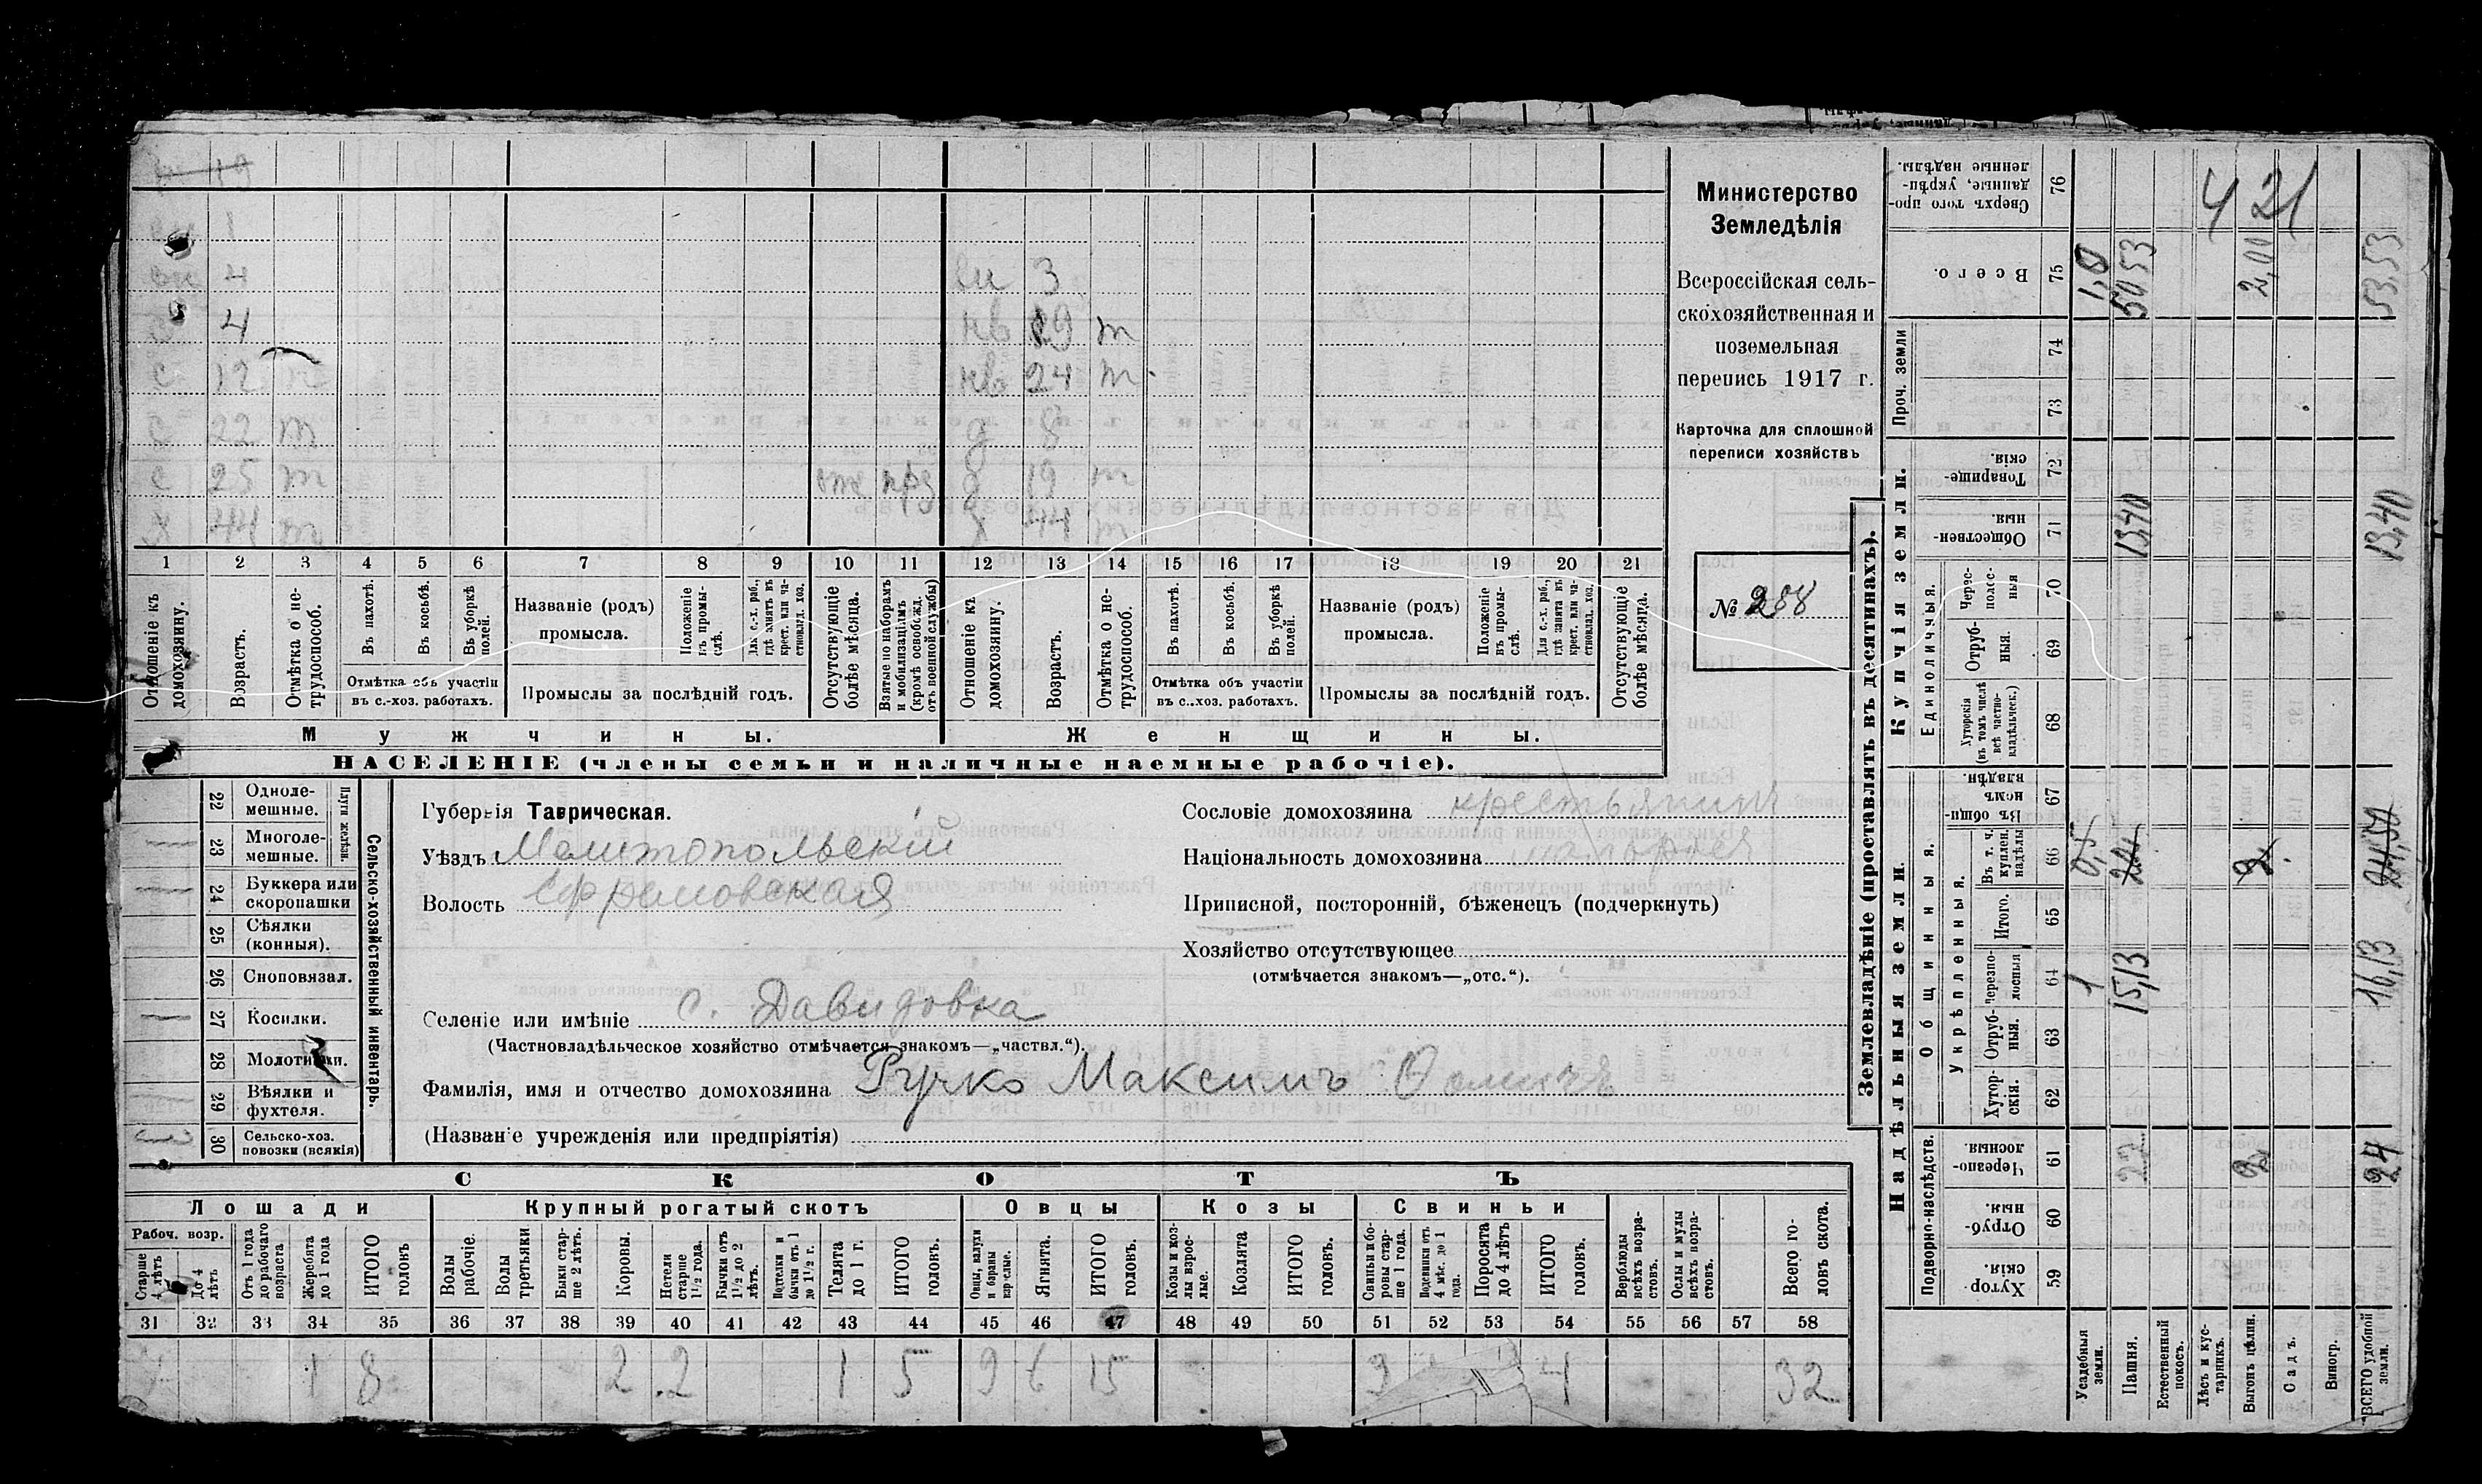 Министерство
Земледѣлія
Всероссійская сель-
скохозяйственная и
поземельная
перепись 1917 г.
Карточка для сплошной
переписи хозяйствъ
№ 288
3
4 29 т
4 12 24 т
С 22 т д 8
С 25 т д 19 т
Х 44 т Х 44 т
1 2 3 4 5 6 7 8 9 10 11 12 13 14 15 16 17 18 19 20 21
Отношеніе къ домохозяину.
Возрастъ.
Отмѣтка о не-трудоспособ.
Въ пахотѣ.
Въ косьбѣ.
Въ уборкѣ полей.
Отмѣтка объ участіи
въ с.-хоз. работахъ.
Названіе (родъ)
промысла.
Положеніе въ промы-слѣ.
Для с.-х. раб., гдѣ занятъ въ крест. или ча-стновлад. хоз.
Промыслы за послѣдній годъ.
Отсутствующіе болѣе мѣсяца.
Взятые по наборамъ и мобилизаціямъ (кромѣ освобожд. отъ военной службы)
Отношеніе къ домохозяину.
Возрастъ.
Отмѣтка о не-трудоспособ.
Въ пахотѣ.
Въ косьбѣ.
Въ уборкѣ полей.
Отмѣтка объ участіи
въ с.-хоз. работахъ.
Названіе (родъ)
промысла.
Положеніе въ промы-слѣ.
Для с.-х. раб., гдѣ занята въ крест. или ча-стновлад. хоз.
Промыслы за послѣдній годъ.
Отсутствующіе болѣе мѣсяца.
Мужчины.
Женщины.
НАСЕЛЕНІЕ (члены семьи и наличные наемные рабочіе).
Сельско-хозяйственный инвентарь.
Плуги желѣзн.
22 Одноле-мешные.
23 Многоле-мешные.
24 Буккера или скоропашки
25 Сѣялки (конныя).
26 Сноповязал.
27 Косилки.
28 Молотилки.
29 Вѣялки и фухтеля.
30 Сельско-хоз. повозки (всякія)
Губернія Таврическая.
Уѣздъ Мелитопольскій
Волость Ефремовская
Селеніе или имѣніе с. Давидовка
(Частновладѣльческое хозяйство отмѣчается знакомъ—„частвл.“).
Фамилія, имя и отчество домохозяина Ручко Максимъ Фомичъ
(Названіе учрежденія или предпріятія)
Сословіе домохозяина крестьянинъ
Національность домохозяина малороссъ
Приписной, посторонній, бѣженецъ (подчеркнуть)
Хозяйство отсутствующее
(отмѣчается знакомъ—„отс.“).
СКОТЪ
Лошади
Крупный рогатый скотъ
Овцы
Козы
Свиньи
Рабоч. возр.
Старше 4 лѣтъ
До 4 лѣтъ
Отъ 1 года до рабочаго возраста
Жеребята до 1 года
ИТОГО головъ
Волы рабочіе.
Волы третьяки
Быки стар-ше 2 лѣтъ.
Коровы.
Нетели старше 1½ года.
Бычки отъ 1½ до 2 лѣтъ.
Подтелки и бычки отъ 1 до 1½ г.
Телята до 1 г.
ИТОГО головъ.
Овцы, валухи и бараны взрослые.
Ягнята.
ИТОГО головъ.
Козы и коз-лы взрос-лые.
Козлята
ИТОГО головъ.
Свиньи и бо-ровы стар-ше 1 года.
Подсвинки отъ 4 мѣс. до 1 года.
Поросята до 4 лѣтъ
ИТОГО головъ.
Верблюды всѣхъ возра-стовъ.
Ослы и мулы всѣхъ возра-стовъ.
Всего го-ловъ скота.
31 32 33 34 35 36 37 38 39 40 41 42 43 44 45 46 47 48 49 50 51 52 53 54 55 56 57 58
1 8 2 2 1 5 9 6 15 3 4 32
Землевладѣніе (проставлять въ десятинахъ).
Надѣльныя земли.
Купчія земли.
Проч. земли
Подворно-наслѣдств.
Общинныя.
Укрѣпленныя.
Единоличныя.
Сверхъ того про-данные, укрѣп-ленные надѣлы. 76
Всего. 75
74
73
Товарище-скія. 72
Обществен-ныя. 71
Черес-полос-ныя 70
Отруб-ныя. 69
Хуторскія (въ томъ числѣ всѣ частно-владѣльческ.) 68
Въ общи-номъ владѣн. 67
Въ т. ч. куплен. надѣлы 66
Итого. 65
Черезпо-лосныя 64
Отруб-ныя. 63
Хутор-скія. 62
Черезпо-лосныя. 61
Отруб-ныя. 60
Хутор-скія. 59
Усадебныя земли.
Пашня.
Естественный покосъ.
Лѣсъ и кус-тарникъ.
Выгонъ цѣлин.
Садъ.
Виногр.
ВСЕГО удобной земли.
4 21
50 53
2,00
53,53
13,40
13,40
1
15,13
16,13
22
2
24